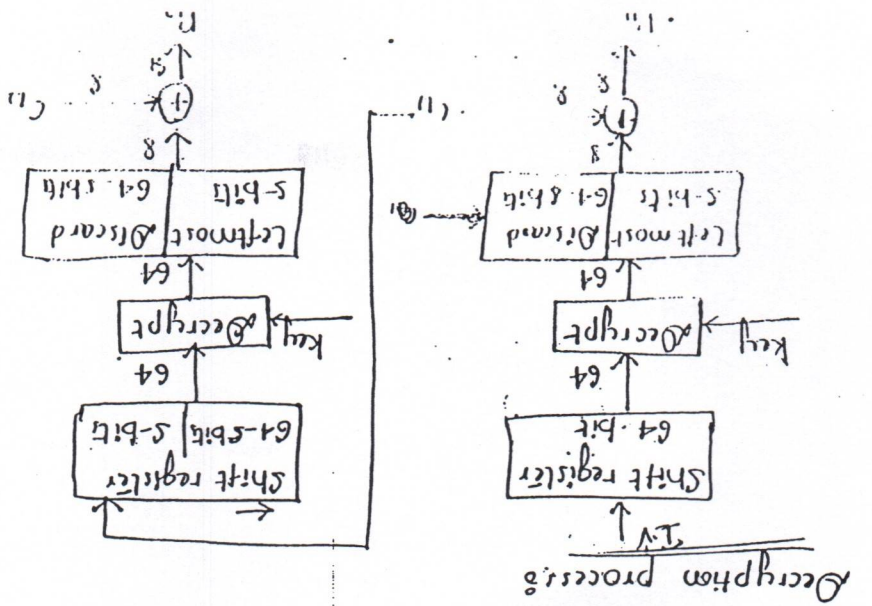 Decryption process:
IV
Shift register
64-bit
64
key
Decrypt
64
Leftmost Discard
S-bits 64-Sbits
8
C11
Shift register
64-Sbits S-bits
64
key
Decrypt
64
Leftmost Discard
S-bits 64-Sbits
8